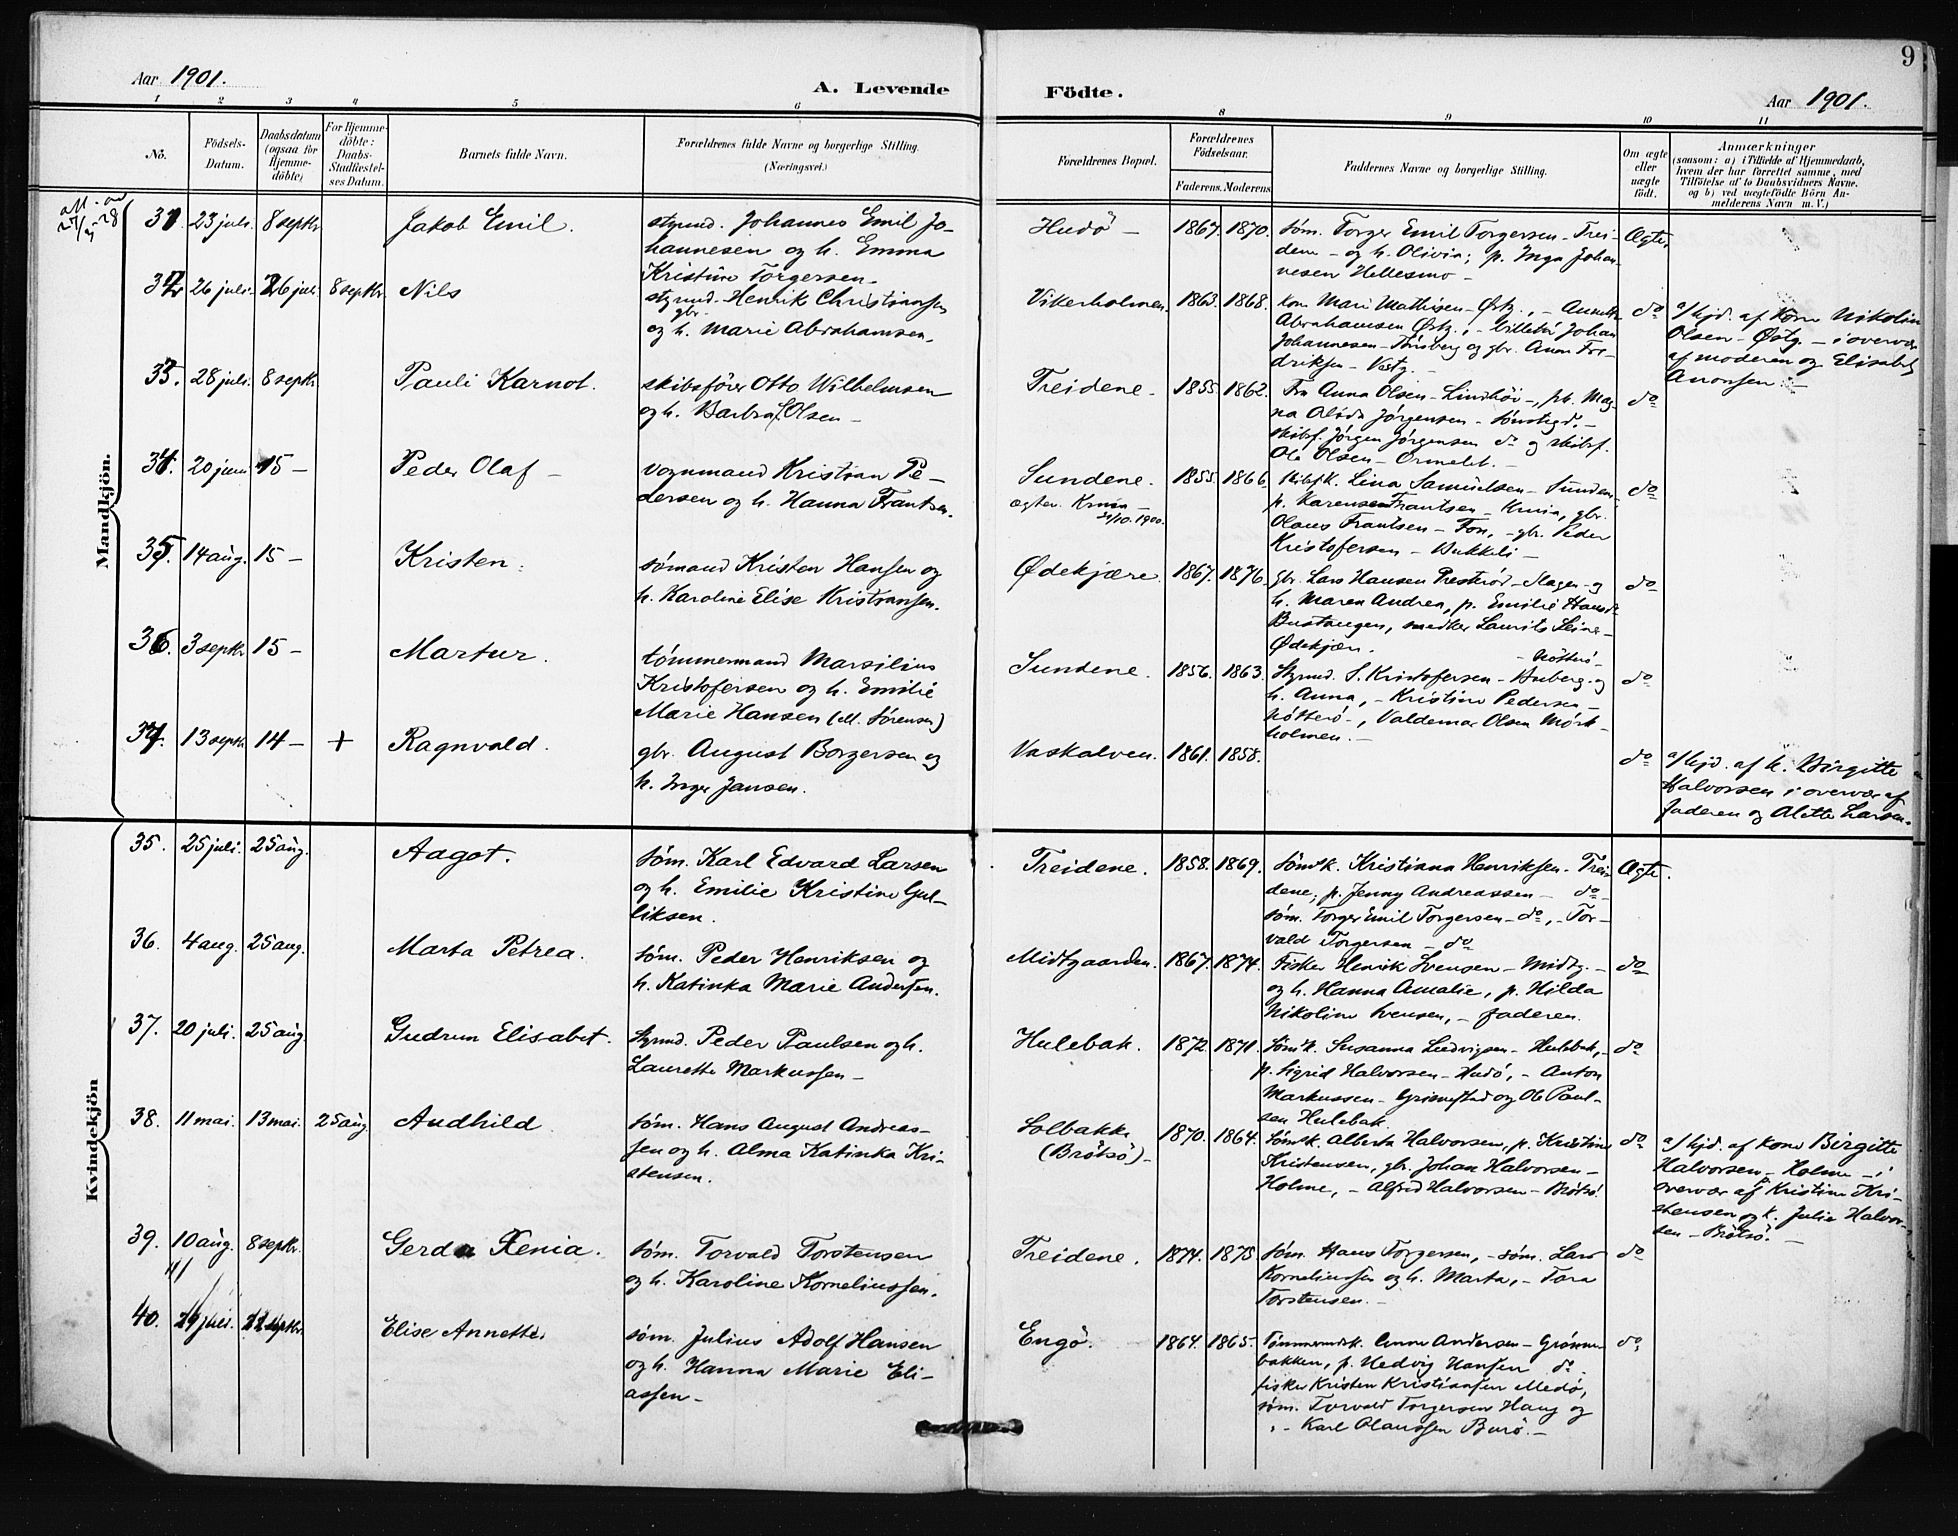 9
Aar 1901.
A. Levende Födte.
Aar 1901.
1 2 3 4 5 6 8 9 10 11
No.
Födsels-Datum.
Daabsdatum (ogsaa for Hjemme-döbte)
For Hjemme-döbte: Daabs-Stadfæstel-ses Datum.
Barnets fulde Navn.
Forældrenes fulde Navne og borgerlige Stilling. (Næringsvei.)
Forældrenes Bopæl.
Forældrenes Födselsaar.
Faderens. Moderens
Faddernes Navne og borgerlige Stilling.
Om ægte eller uægte födt.
Anmærkninger
(saasom: a) i Tilfælde af Hjemmedaab,
hvem der har forrettet samme, med
Tilföielse af to Daabsvidners Navne.
og b) ved uægtefödte Börn An-
melderens Navn m. V.)
Mandkjön.
31. 23 juli. 8 septbr. Jakob Emil.
styrmd. Johannes Emil Jo-
hannesen og h. Emma
Kristine Torgersen.
Hudö – 1867. 1870.
søm. Torger Emil Torgersen – Trei-
dene – og h. Olivia; p. Inga Johan-
nesen Hellesmo –
Ægte.
32 26 juli. 26 juli. 8 septbr. Nils
styrmd. Henrik Christiansen
og h. Marie Abrahamsen.
Vikerholmen. 1863. 1868.
kone Mari Mathisen – Østg., – Annette
Abrahamsen Østg., –
Johannesen – Tönsberg og gbr. Anon Fre-
driksen – Vestg. –
do
a/ hjd. af kone Nikoline
Olsen – Østg. – i overvær
af moderen og Elisabet
Anonsen. –
33. 28 juli. 8 septbr. Pauli Karnot.
skibsförer Otto Wilhelmsen
og h. Barbra Olsen –
Treidene. 1855. 1862.
Fru Anna Olsen – Lindhöi –, p. Mag-
na Olida Jörgensen – Sönstegd. –
skibsf. Jörgen Jörgensen do og skibsf.
Ole Olsen – Ormelet. –
do
34. 20 juni 15 – Peder Olaf –
vognmand Kristian Pe-
dersen og h. Hanna Frantsen.
Sundene.
1855. 1866.
skibsfk. Lina Samuelsen – Sundene
p. Karensen Frantsen – Kruia, gbr.
Olaus Frantsen – Fon, – gbr. Peder
Kristofersen – Bukkeli –
do
35. 14 aug. 15 – Kristen.
sömand Kristen Hansen og
h. Karoline Elise Kristiansen.
Ødekjære. 1867. 1876.
gbr. Lars Hansen Presterød – Slagen – og
h. Maren Andrea, p. Emilie Hansen
Bustangen, snedker Laurits Leine –
Ødekjær.
do
36. 3 septbr. 15 – Martur.
tömmermand Marsilius
Kristofersen og h. Emilie
Marie Hansen (ell. Sörensen)
Sundene. 1856. 1863.
Styrmd. S. Kristofersen – Buberg – og – Nötterö –
h. Anna, – Kristine Pedersen –
Nötterö –, Valdemar Olsen Mörk-
holmen. –
do
37. 13 septbr. 14 – + Ragnvald.
gbr. August Borgersen og
h. Inger Jansen.
Vaskalven. 1861. 1858.
do
a/ hjd. af h. Birgitte
Halvorsen i overvær af
faderen og Alette Larsen.
Kvindekjön
35. 25 juli. 25 aug. Aagot.
söm. Karl Edvard Larsen
og h. Emilie Kristine Gul-
liksen.
Treidene. 1858. 1869.
Sömk. Kristiana Henriksen – Trei-
dene, p. Jenny Andreassen – do –
söm. Torger Emil Torgersen – do, – Tor-
vald Torgersen – do
Ægte.
36. 4 aug. 25 aug. Marta Petrea.
söm. Peder Henriksen og
h. Katinka Marie Andersen.
Midtgaarden. 1867. 1874.
Fisker Henrik Svensen – Midtg. –
og h. Hanna Amalie, p. Hilda
Nikoline Svensen, – faderen.
do
37. 20 juli 25 aug. Gudrun Elisabet.
Styrmd. Peder Paulsen og h.
Laurette Markussen –
Hulebak. 1872. 1871.
Sömk. Susanna Ludvigsen – Hulebak, –
p. Sigrid Halvorsen – Hudö, – Anton
Markussen – Grimestad og Ole Paul-
sen Hulebak.
do
38. 11 mai. 13 mai. 25 aug. Audhild
söm. Hans August Andreas-
sen og h. Alma Katinka Kri-
stensen.
Solbakke
(Brötsö) –
1870. 1864.
Sömk. Alberta Halvorsen, p. Kristine
Kristensen, gb. Johan Halvorsen –
Holme, – Alfred Halvorsen – Brötsö.
do
a/ hjd. af kone Birgitte
Halvorsen – Holme – i
overvær af Kristine Kri-
stensen og k. Julie Halvor-
sen – Brötsö. –
39. 10 aug. 8 septbr. Gerda Xenia.
söm. Torvald Torstensen
og h. Karoline Korneliussen.
Treidene. 1874. 1875
söm. Hans Torgersen, – söm. Lars
Korneliussen og h. Marta, – Tora
Torstensen. –
do
40. 29 juli. 22 septbr. Elise Annette.
söm. Julius Adolf Hansen
og h. Hanna Marie Eli-
assen –
Engö. 1864. 1865.
Tömmermdk. Anne Andersen – Grönne-
bakken, p. Hedvig Hansen do.
fisker Kristen Kristiansen Medö,
söm. Torvald Torgersen Haug og
" – Karl Olaussen Burö. –
do